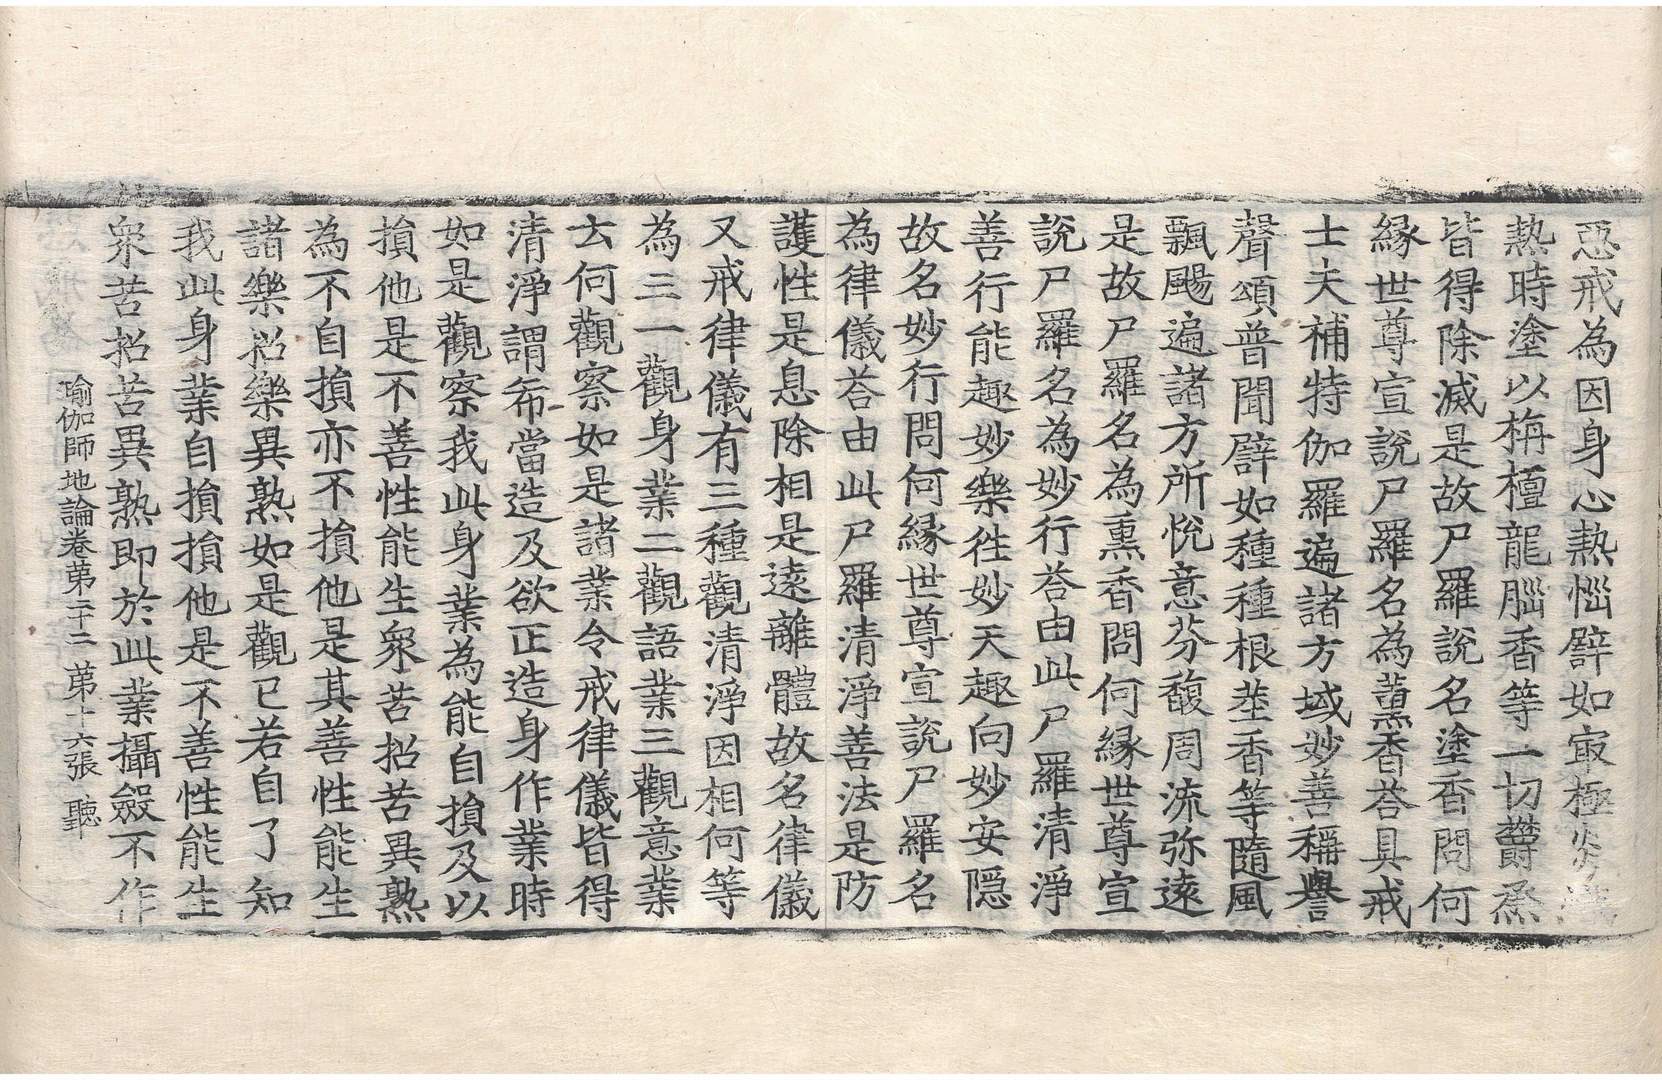 惡戒為因身心熱惱譬如㝡極炎
熱時塗以栴檀龍腦香等一切欝蒸
皆得除滅是故尸羅說名塗香問何
緣世尊宣說尸羅名為薰香荅具戒
士夫補特伽羅遍諸方域妙善稱譽
聲頌普聞譬如種種根莖香等隨風
飄颺遍諸方所悅意芬馥周流弥遠
是故尸羅名為熏香問何緣世尊宣
說尸羅名為妙行荅由此尸羅清淨
善行能趣妙樂徃妙天趣向妙安隱
故名妙行問何緣世尊宣說尸羅名
為律儀荅由此尸羅清淨善法是防
護性是息除相是遠離體故名律儀
又戒律儀有三種觀清淨因相何等
為三一觀身業二觀語業三觀意業
云何觀察如是諸業令戒律儀皆得
清淨謂希當造及欲正造身作業時
如是觀察我此身業為能自損及以
損他是不善性能生衆苦招苦異熟
為不自損亦不損他是其善性能生
諸樂招樂異熟如是觀已若自了知
我此身業自損損他是不善性能生
衆苦招苦異熟即於此業攝斂不作
瑜伽師地論卷苐二十二 苐十六張 聽